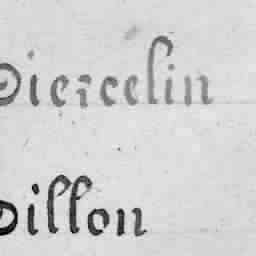 Diercelin
Dillon